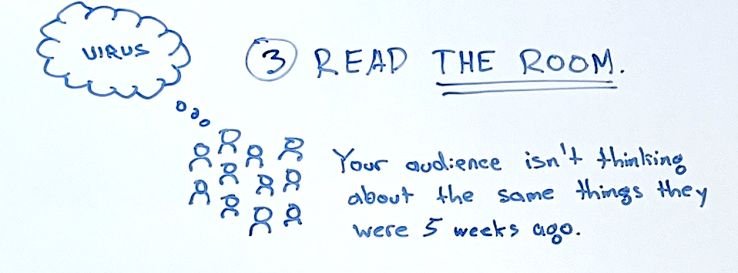 VIRUS
3 READ THE ROOM.
Your audience isn't thinking
about the same things they
were 5 weeks ago.